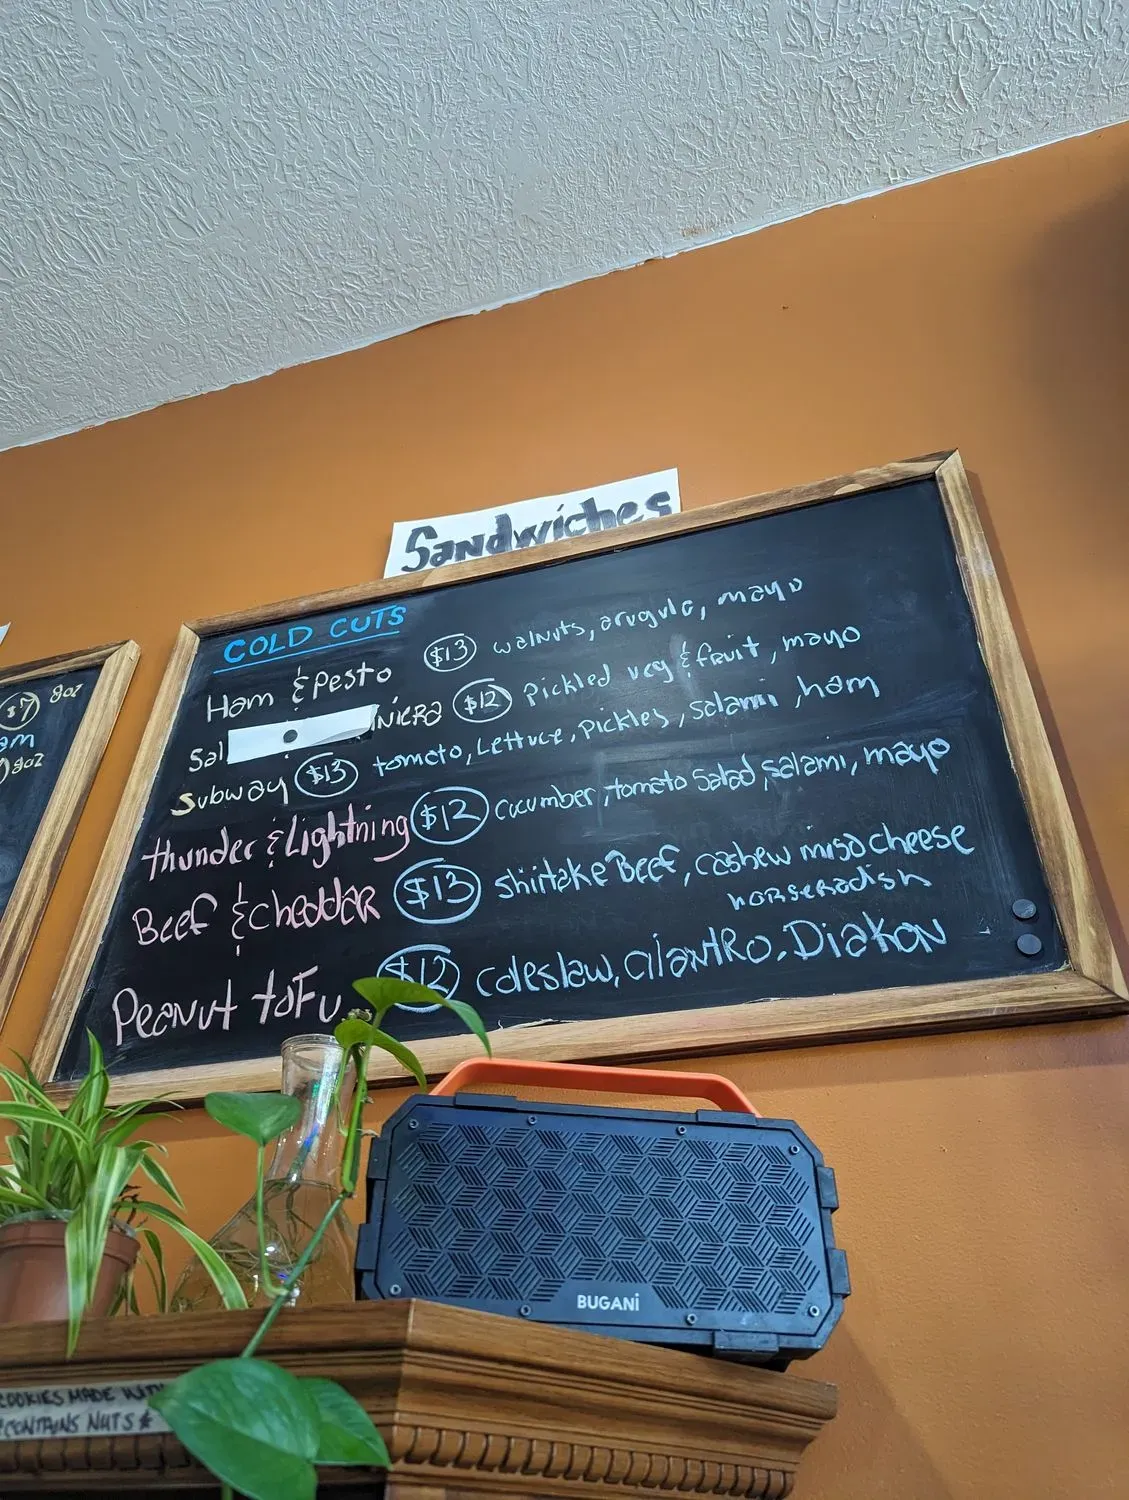 Sandwiches
COLD CUTS
Ham & Pesto $13 walnuts, arugula, mayo
$12 Pickled veg & fruit, mayo
Subway $13 tomato, Lettuce, pickles, salami, ham
thunder & Lightning $12 cucumber, tomato salad, salami, mayo
Beef & cheddar $13 shiitake Beef, cashew miso cheese
horseradish
Peanut toFu $12 coleslaw, cilantro. Diakon
$7 8oz
8oz
BUGANi
COOKIES MADE WITH
CONTAINS NUTS